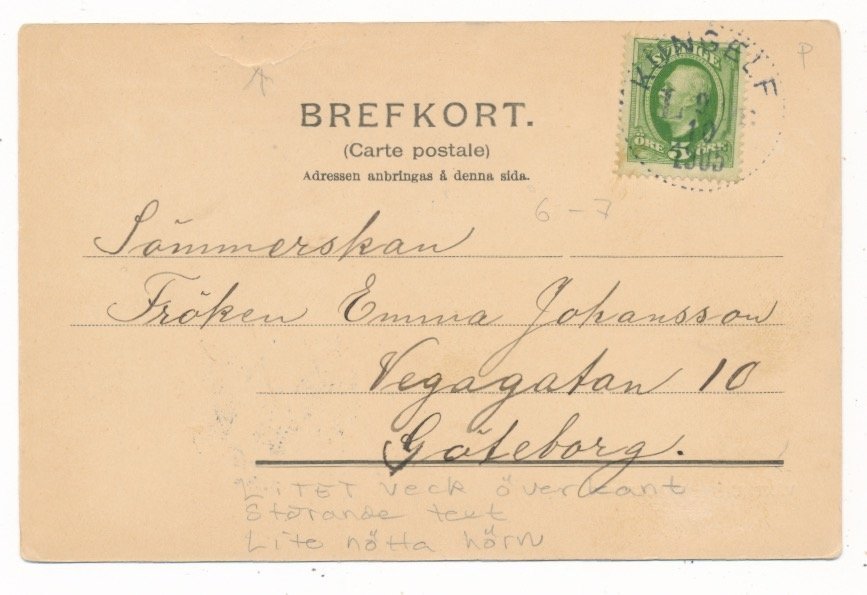 BREFKORT.
(Carte postale)
Adressen anbringas å denna sida.
KUNGELF
10
1903
5 ÖRE
P
6-7
Sömmerskan
Fröken Emma Johansson
Vegagatan 10
Göteborg.
Litet veck överkant
Störande text
Lite nötta hörn